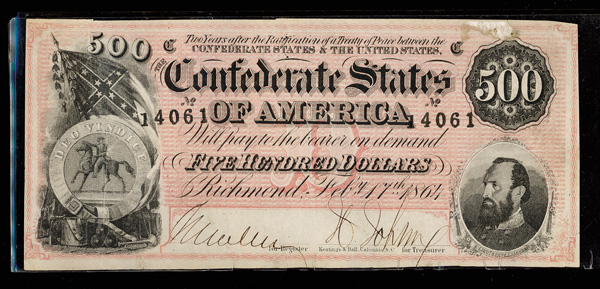 Two Years after the Ratification of a Treaty of Peace between the
500 C CONFEDERATE STATES & THE UNITED STATES, C
THE Confederate States 500
No No
14061 OF AMERICA, 14061
Will pay to the bearer on demand
DEO VINDICE
FIVE HUNDRED DOLLARS
Richmond, Feby. 17th 1864
for Register Keatinge & Ball, Columbia, S.C. for Treasurer